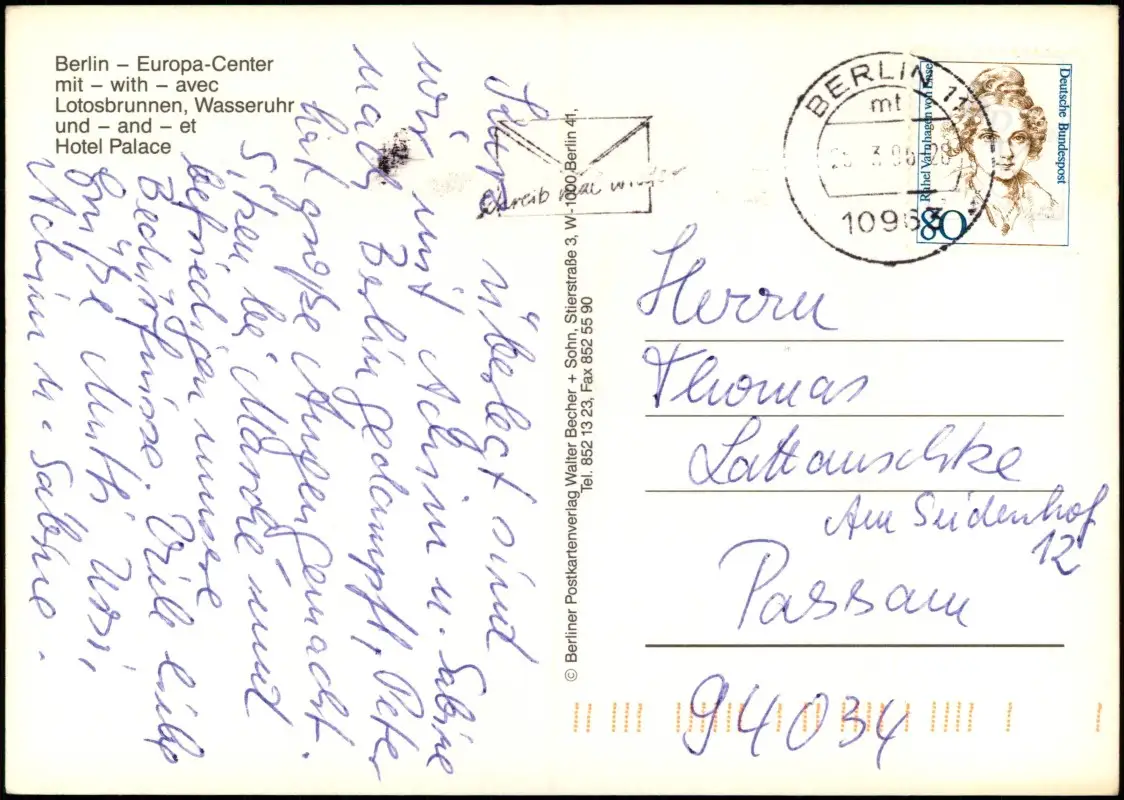 Berlin – Europa-Center
mit – with – avec
Lotosbrunnen, Wasseruhr
und – and – et
Hotel Palace
überlegt sind
wir mit Achim u. Sabine
nach Berlin gedampft, Peter
hat große Augen gemacht.
Sitzen bei und
befriedigen unsere
Bedürfnisse. Viele liebe
Grüße Mutti, Ursi,
Achim u. Sabine.
© Berliner Postkartenverlag Walter Becher + Sohn, Stierstraße 3, W-1000 Berlin 41,
Tel. 852 13 23, Fax 852 55 90
Schreib mal wieder
BERLIN 11
mt
10963
Rahel Varnhagen von Ense
Deutsche Bundespost
80
Herrn
Thomas
Lattauschke
Am Seidenhof
12
Passau
94034